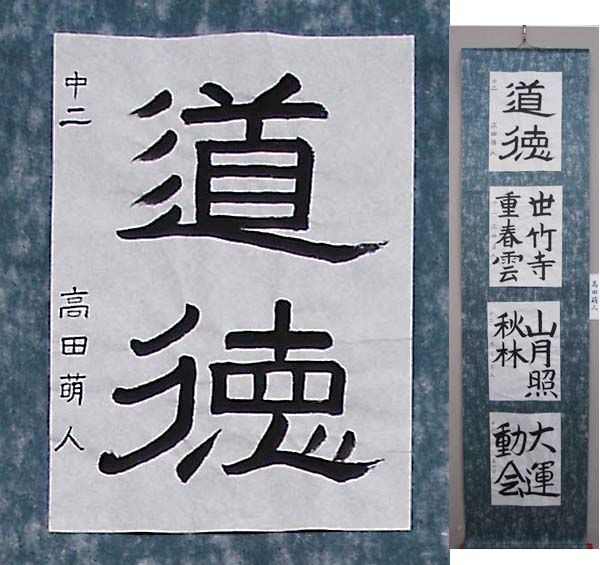 道徳
中二
高田萌人
道徳
中二
高田萌人
世竹寺
重春雲
山月照
秋林
大運
動会
高田萌人